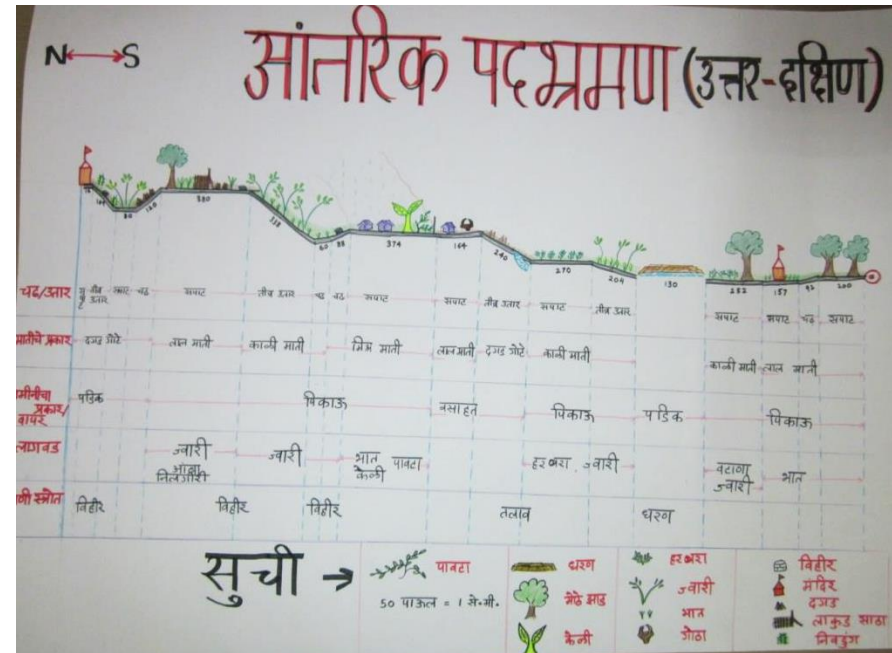 N ↔ S
आंतरिक पदभ्रमण (उत्तर-दक्षिण)
380
338
60
88
374
164
240
270
204
130
252
157
92
200
चढ/उतार तीव्र उतार सपाट चढ सपाट तीव्र उतार चढ सपाट सपाट तीव्र उतार सपाट तीव्र उतार सपाट सपाट चढ सपाट
मातीचे प्रकार दगड गोटे लाल माती काळी माती मिश्र माती लाल माती दगड गोटे काळी माती काळी माती लाल माती
जमीनीचा प्रकार/वापर पडिक पिकाऊ वसाहत पिकाऊ पडिक पिकाऊ
लागवड ज्वारी ज्वारी भात पावटा हरभरा, ज्वारी वटाणा भात
निलगीरी केळी ज्वारी
विहीर विहीर विहीर तलाव धरण
सुची →
पावटा
50 पाऊल = 1 से.मी.
धरण
मोठे झाड
केळी
हरभरा
ज्वारी
भात
गोठा
विहीर
मंदिर
दगड
लाकुड साठा
निवडुंग